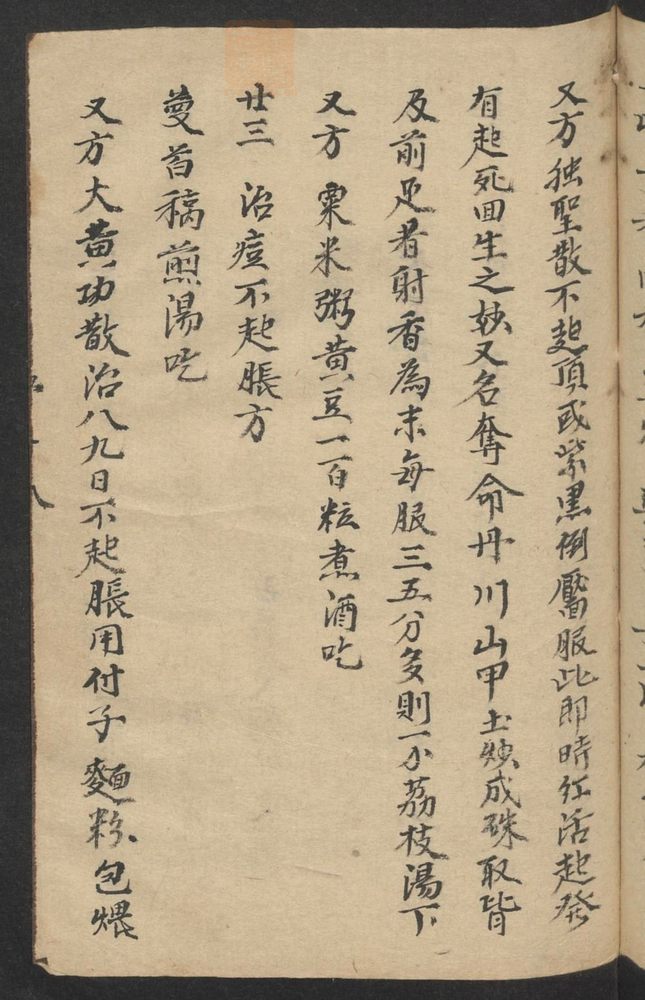 又方 独聖散不起頂或紫黒倒靨服此即時红活起發
有起死回生之妙又名奪命丹川山甲土煅成珠取背
及前足者射香為末每服三五分多則一小荔枝湯下
又方 粟米粥黄豆一百粒煮酒吃
廿三 治痘不起脹方
蔓首稿煎湯吃
又方大黄功散治八九日不起脹用付子麵粉包煨